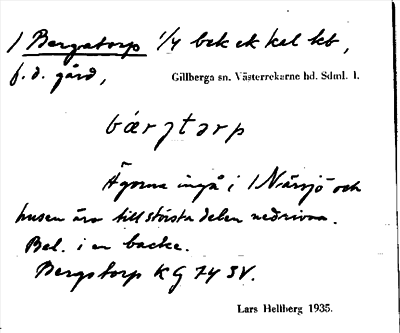 1 Bergatorp 1/4 bek ek kal kb,
f.d. gård,
Gillberga sn. Västerrekarne hd. Sdml. 1.
bærjtarp
Ägorna ingå i 1 Närsjö och
husen äro till största delen nedrivna.
Bel. i en backe.
Bergstorp KG 74 SV.
Lars Hellberg 1935.